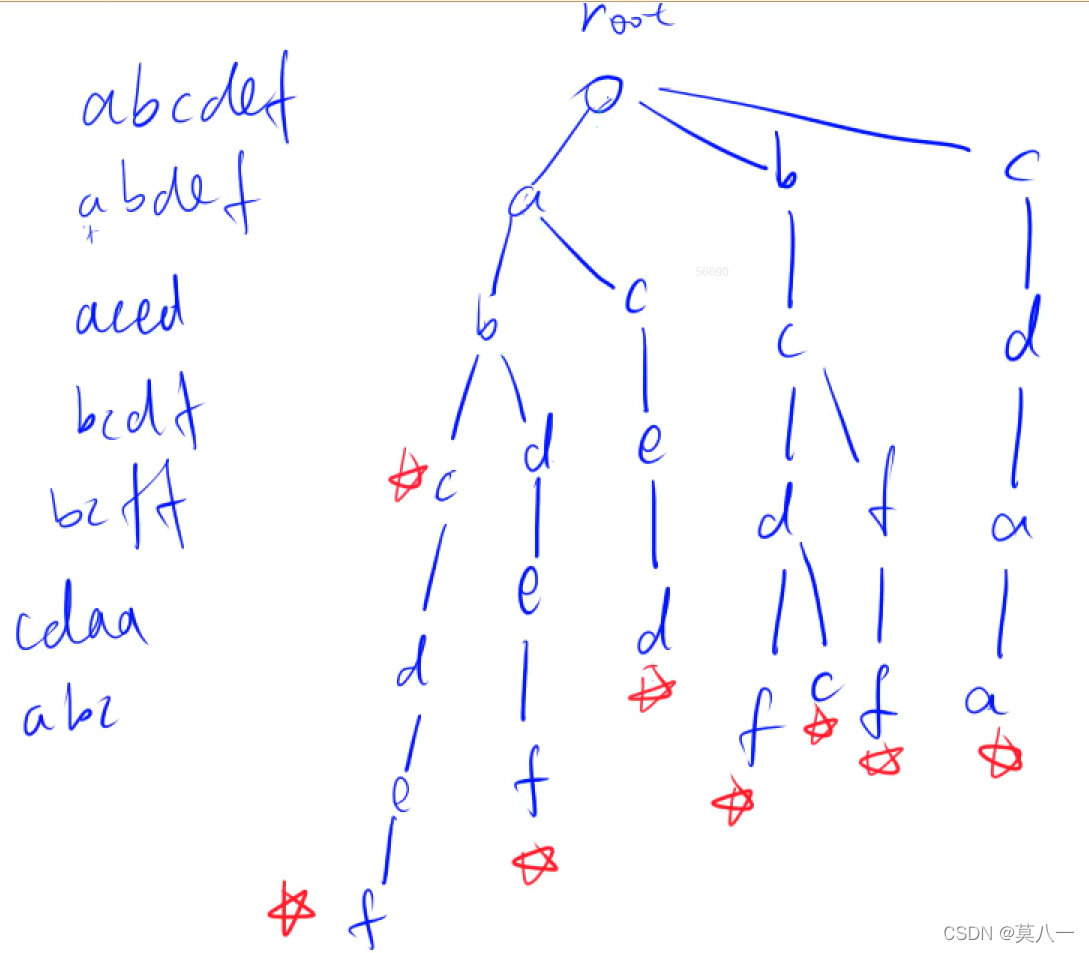 root
abcdef
abdef
aced
bcdf
bcff
cdaa
abc
b c
a
c
b
c
d
d
e
c
f
d
a
e
d
d
f c f a
f
e
f
56690
CSDN @莫八一